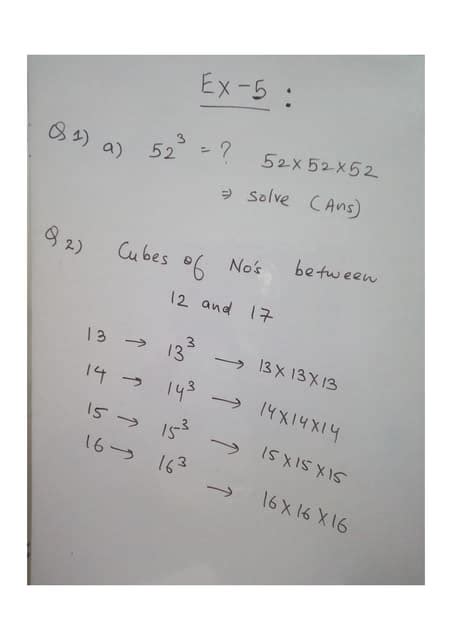 Ex-5 :
Q 1) a) 52³ = ? 52x52x52
⇒ solve (Ans)
Q 2) Cubes of No's between
12 and 17
13 → 13³ → 13x13x13
14 → 14³ → 14x14x14
15 → 15³ → 15x15x15
16 → 16³ → 16x16x16